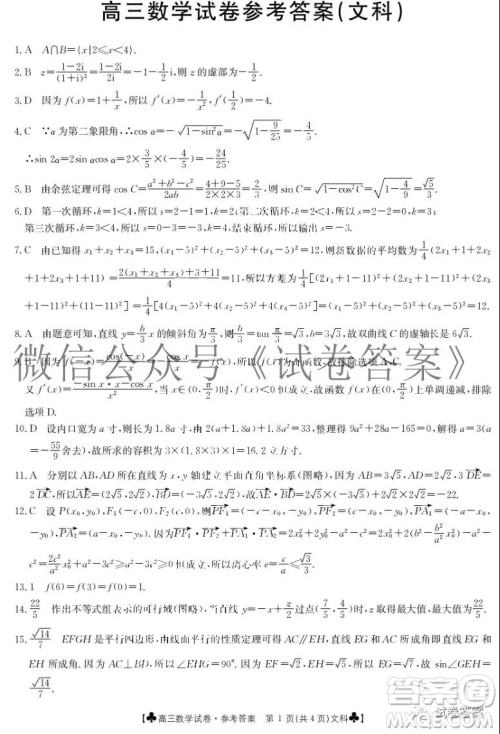 高三数学试卷参考答案(文科)
1. A A∩B={x|2≤x<4}.
2. B z=(1-2i)/(1+i)²=(1-2i)/2i=-1-½i,所以 z 的虚部为-½.
3. D 因为 f(x)=1+1/x,所以 f′(x)=-1/x²,f′(½)=-4.
4. C ∵α为第二象限角,∴cos α=-√(1-sin²α)=-√(1-9/25)=-4/5.
∴sin 2α=2sin αcos α=2×3/5×(-4/5)=-24/25.
5. B 由余弦定理可得 cos C=(a²+b²-c²)/2ab=(4+9-5)/(2×2×3)=2/3,则 sin C=√(1-cos²C)=√(1-4/9)=√5/3.
6. D 第一次循环,k=1<4,所以 s=2;第二次循环,k=2<4,所以 s=2-2=0,k=3;
第三次循环,k=3<4,所以 s=0-3=-3,k=4,结束循环,所以输出 s=-3.
7. C 由已知得 x₁+x₂+x₃=15,(x₁-5)²+(x₂-5)²+(x₃-5)²=12,则新数据的平均数为¼(2x₁+1+2x₂
+1+2x₃+1+11)=(2(x₁+x₂+x₃)+3+11)/4=11,所以方差为¼[(2x₁+1-11)²+(2x₂+1-11)²+
(2x₃+1-11)²+(11-11)²]=¼[4(x₁-5)²+4(x₂-5)²+4(x₃-5)²]=(x₁-5)²+(x₂-5)²+(x₃-5)²=12.
8. A 由题意可知,直线 y=(b/3)x 的倾斜角为π/3,则b/3=tan π/3=√3,故双曲线 C 的虚轴长是 6√3.
微信公众号《试卷答案》
9.
又 f′(x)=(-sin x·x-cos x)/x²,当 x∈(0,π/2)时,f′(x)<0,f(x)在(0,π/2)上单调递减,排除
选项 D.
10. D 设内口宽为 a 寸,则长为 1.8a 寸,由 2(a+1.4)(1.8a+1.4)=8.5×8.4,整理得 9a²+28a-165=0,解得 a=3(a=
-55/9舍去),故斗的底面积为 3×(1.8×3)×1=16.2 立方寸.
11. A 分别以 AB,AD 所在直线为 x,y 轴建立平面直角坐标系(图略),因为 AB=3√5,AD=2√5,3DE=
2DC,所以 E(2√5,2√5),故AE·BD=2√5×(-3√5)+2√5×2√5=-22.
12. C 设 P(x₀,y₀),F₁(-c,0),F₂(c,0),则PF₁=(-c-x₀,-y₀),PF₂=(c-x₀,-y₀),PA₁=(-a-x₀,
-y₀),PA₂=(a-x₀,-y₀),所以PF₁·PF₂+PA₁·PA₂=2x₀²+2y₀²-a²-c²=2x₀²+2(b²-(b²/a²)x₀²)-a²
-c²=(2c²/a²)x₀²+a²-3c²=0 有解,所以 a²≥3c²,即 e=c/a≤√3/3.
13. 1 f(6)=f(3)=f(0)=1.
14. 22/5 作出不等式组表示的可行域(图略),当直线 y=-x+z/2过点(7/5,4/5)时,z 取得最大值,最大值为22/5.
15. √14/7 EFGH 是平行四边形,由线面平行的性质定理可得 AC∥EH,直线 EG 和 AC 所成角即 EG 和
EH 所成角. 因为 AC⊥BD,所以∠EHG=90°. 因为 EH
√14/7.
♣高三数学试卷·参考答案 第 1 页(共 4 页)文科♣
试卷答案